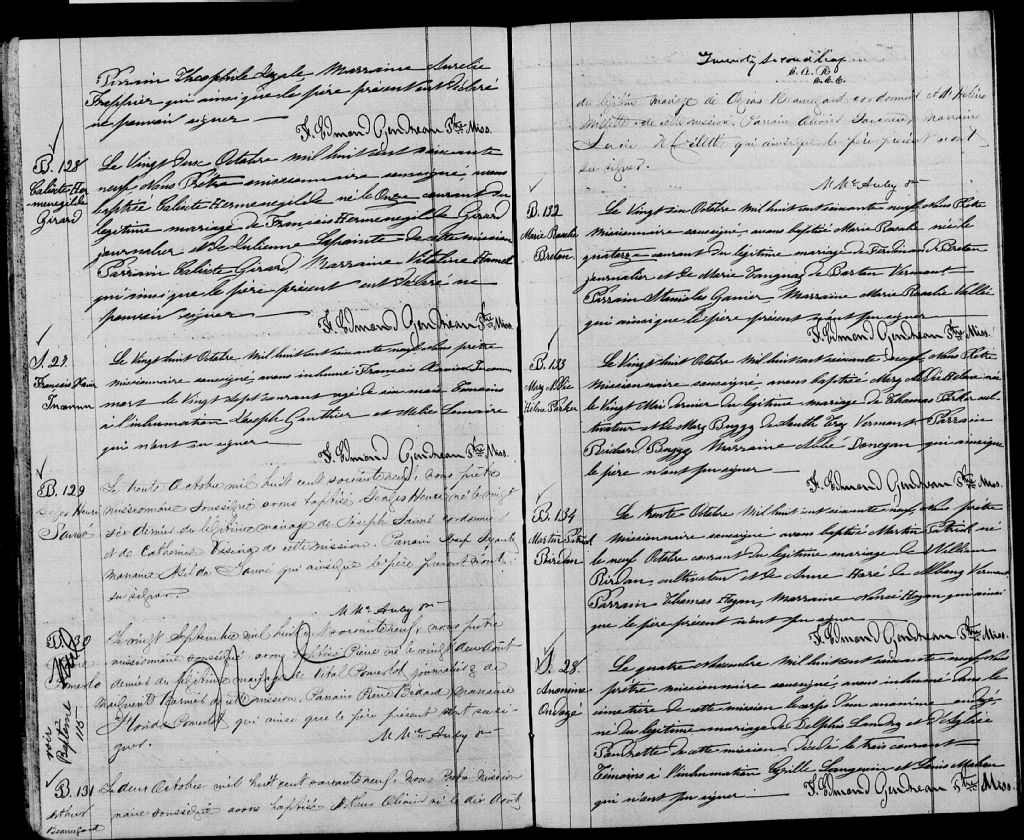 Parrain Théophile Marraine Aurelie
Frappier qui ainsi que le père présent ont déclaré
ne pouvoir signer —
F. Edmond Gendreau Ptre Miss.
B. 128
Calixte Her
menegilde
Girard
Le Vingt deux Octobre mil huit cent soixante
neuf Nous Prêtre missionnaire soussigné, avons
baptisé Calixte Hermenegilde né le Onze courant du
legitime mariage de François Hermenegilde Girard
journalier et de Julienne Lapointe de cette mission
Parrain Calixte Girard, Marraine Hamel
qui ainsi que le père présent ont déclaré ne
pouvoir signer —
F. Edmond Gendreau Ptre Miss.
S. 27
François Xavier
Inconnu
Le Vingt huit Octobre, mil huit cent soixante neuf, Nous prêtre
missionnaire soussigné, avons inhumé François Xavier Inconnu
mort le Vingt sept courant agé de six mois Temoins
à l'inhumation Joseph Gauthier et
qui n'ont su signer —
F. Edmond Gendreau Ptre Miss.
B. 129
Georges Henri
Sauvé
Le trente Octobre mil huit cent soixante neuf, nous prêtre
missionnaire soussigné avons baptisé Georges Henri né le vingt
dernier du légitime mariage de Joseph Sauvé cordonnier
et de Catherine de cette mission. Parrain
marraine Sauvé qui ainsi que le père présent n'ont
su signer.
M Mc Auley ptre
B. 130
Pomerlo
voir
Baptême
115
Le vingt Septembre mil huit cent soixante neuf, nous prêtre
missionnaire soussigné avons baptisé Pierre né le vingt deux Août
dernier du légitime mariage de Vital Pomerlot journalier de
et de cette mission. Parrain René Bedard marraine
Pomerlot qui ainsi que le père présent n'ont su si-
gner.
M Mc Auley ptre
B. 131
Arthur
Beauregard
Le deux Octobre mil huit cent soixante neuf, nous Prêtre mission
naire soussigné avons baptisé Arthur Olivier né le dix Août
Twenty second leaf
G. A. R.
D.C.C.
du légitime mariage de Ozias Beauregard cordonnier et d'Helène
Millette de cette mission. Parrain Olivier marraine
Lucie Millette qui ainsi que le père présent n'ont
su signer.
M Mc Auley ptre
B. 132
Marie Rosalie
Breton
Le Vingt six Octobre mil huit cent soixante neuf, Nous Prêtre
missionnaire soussigné, avons baptisé Marie Rosalie née le
quatorze courant du legitime mariage de Ferdinand Breton
journalier et de Marie Tanguay de Barton Vermont
Parrain Stanislas Garnier, Marraine Marie Rosalie
qui ainsi que le père présent n'ont pu signer —
F. Edmond Gendreau Ptre Miss.
B. 133
Mary
Hélène Parker
Le Vingt sept Octobre, mil huit cent soixante neuf, Nous Prêtre
missionnaire soussigné, avons baptisé Mary Hélène née
le Vingt Mai dernier du legitime mariage de Thomas Parker cul-
tivateur et de Mary Buggy de South Troy Vermont. Parrain
Richard Buggy Marraine Donegan qui ainsi que
le père n'ont pu signer —
F. Edmond Gendreau Ptre Miss.
B. 134
Martin Patrick
Birdan
Le trente Octobre, mil huit cent soixante neuf, Nous prêtre
missionnaire soussigné avons baptisé Martin Patrick né
le neuf Octobre courant du legitime mariage de William
Birdan, cultivateur et de Anne Haré de Albany Vermont,
Parrain Thomas Hogan, Marraine Nancé Hogan qui ainsi
que le père présent n'ont pu signer —
F. Edmond Gendreau Ptre Miss.
S. 28.
Anonyme
Ondoyé
Le quatre Novembre mil huit cent soixante neuf, Nous
prêtre missionnaire soussigné, avons inhumé dans le
cimetière de cette mission le corps d'un anonyme ondoyé,
né du legitime mariage de Delphis Landry et d'
de cette mission, décédé le trois courant
Témoins à l'inhumation Cyrille Langevin et Louis
qui n'ont pu signer —
F. Edmond Gendreau Ptre Miss.